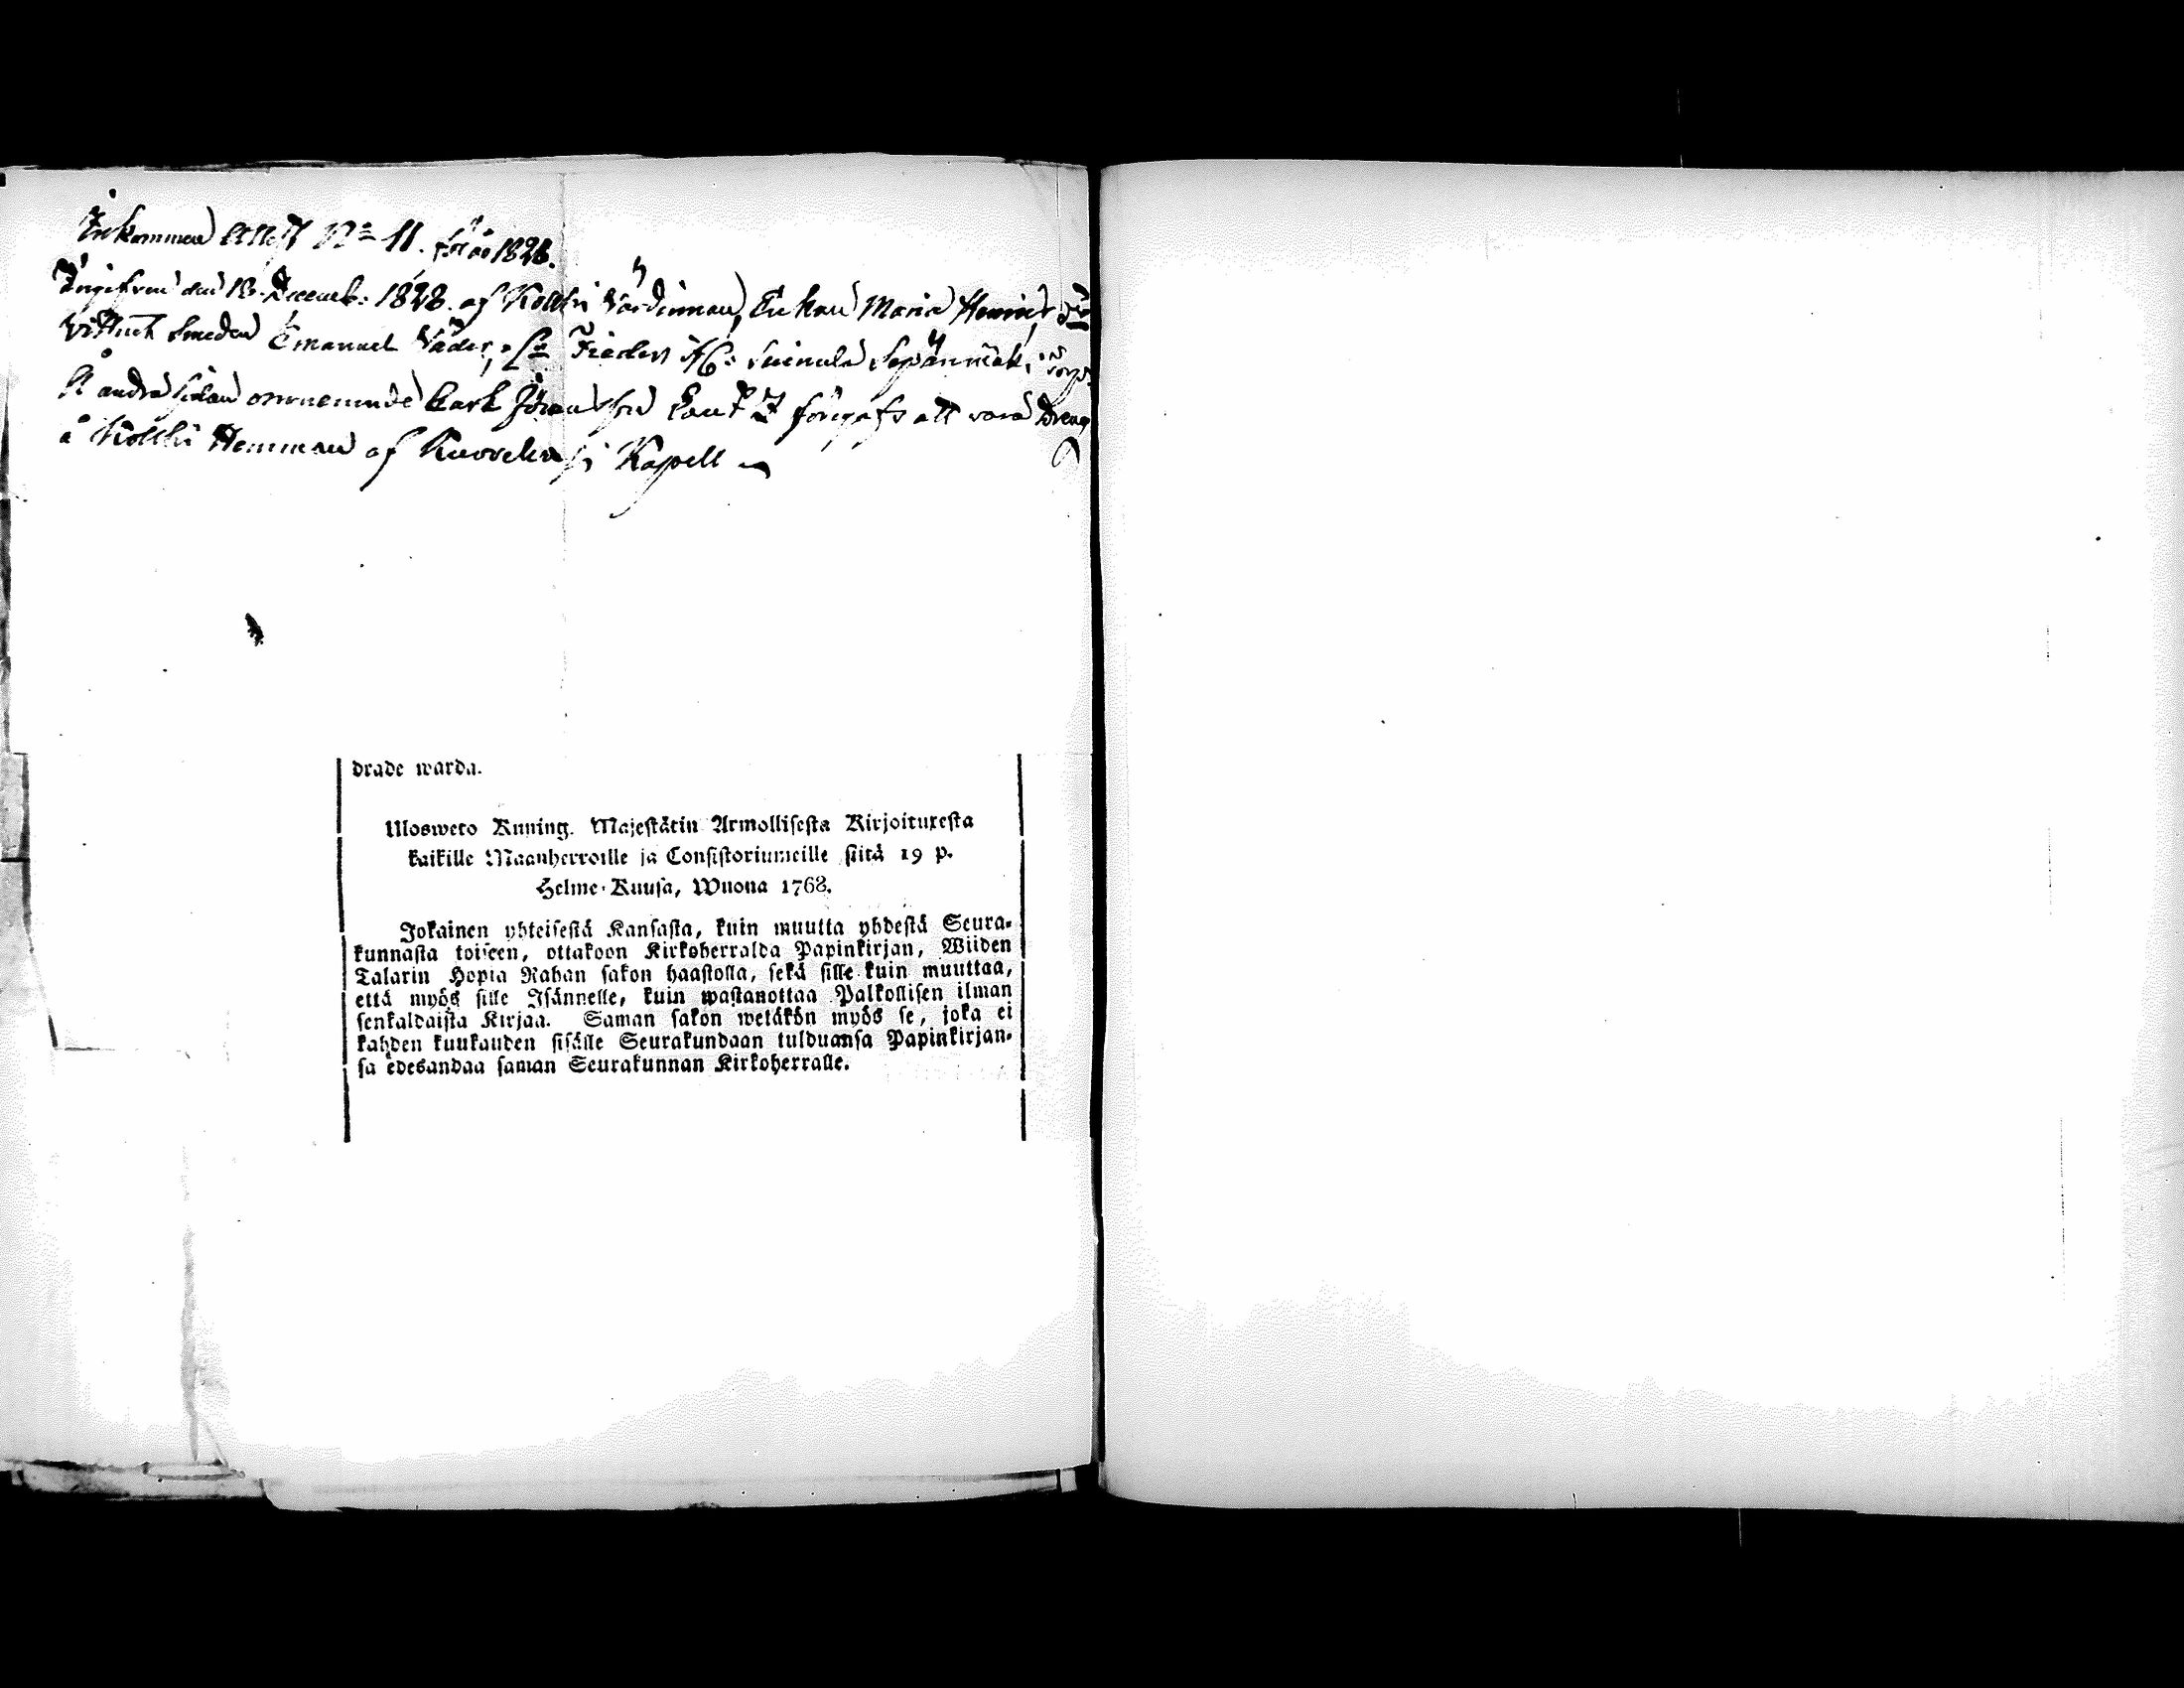 Inkommen Attest No 11. för år 1828.
Ingifven den 13. Decemb: 1828. af Kolkki Värdinnan, Enkan Maria Henrics dr
Smeden Emanuel Fredens Suinula Sepänmäki
Å andra sidan omnemnde Carl Johan föregafs att vara Dreng
å Kolkki Hemman af Kuorevesi Kapell
drade warda.
Ulosweto Kuning. Majestätin Armollisesta Kirjoituxesta
kaikille Maanherroille ja Consistoriumeille siitä 19 p.
Helme-Kuusa, Wuona 1768.
Jokainen yhteisestä Kansasta, kuin muutta yhdestä Seura-
kunnasta toiseen, ottakoon Kirkoherralda Papinkirjan, Wiiden
Talarin Hopia Rahan sakon haastolla, sekä sille kuin muuttaa,
että myös sille Isännelle, kuin wastanottaa Palkollisen ilman
senkaldaista Kirjaa. Saman sakon wetäkön myös se, joka ei
kahden kuukauden sisälle Seurakundaan tulduansa Papinkirjan-
sa edesandaa saman Seurakunnan Kirkoherralle.